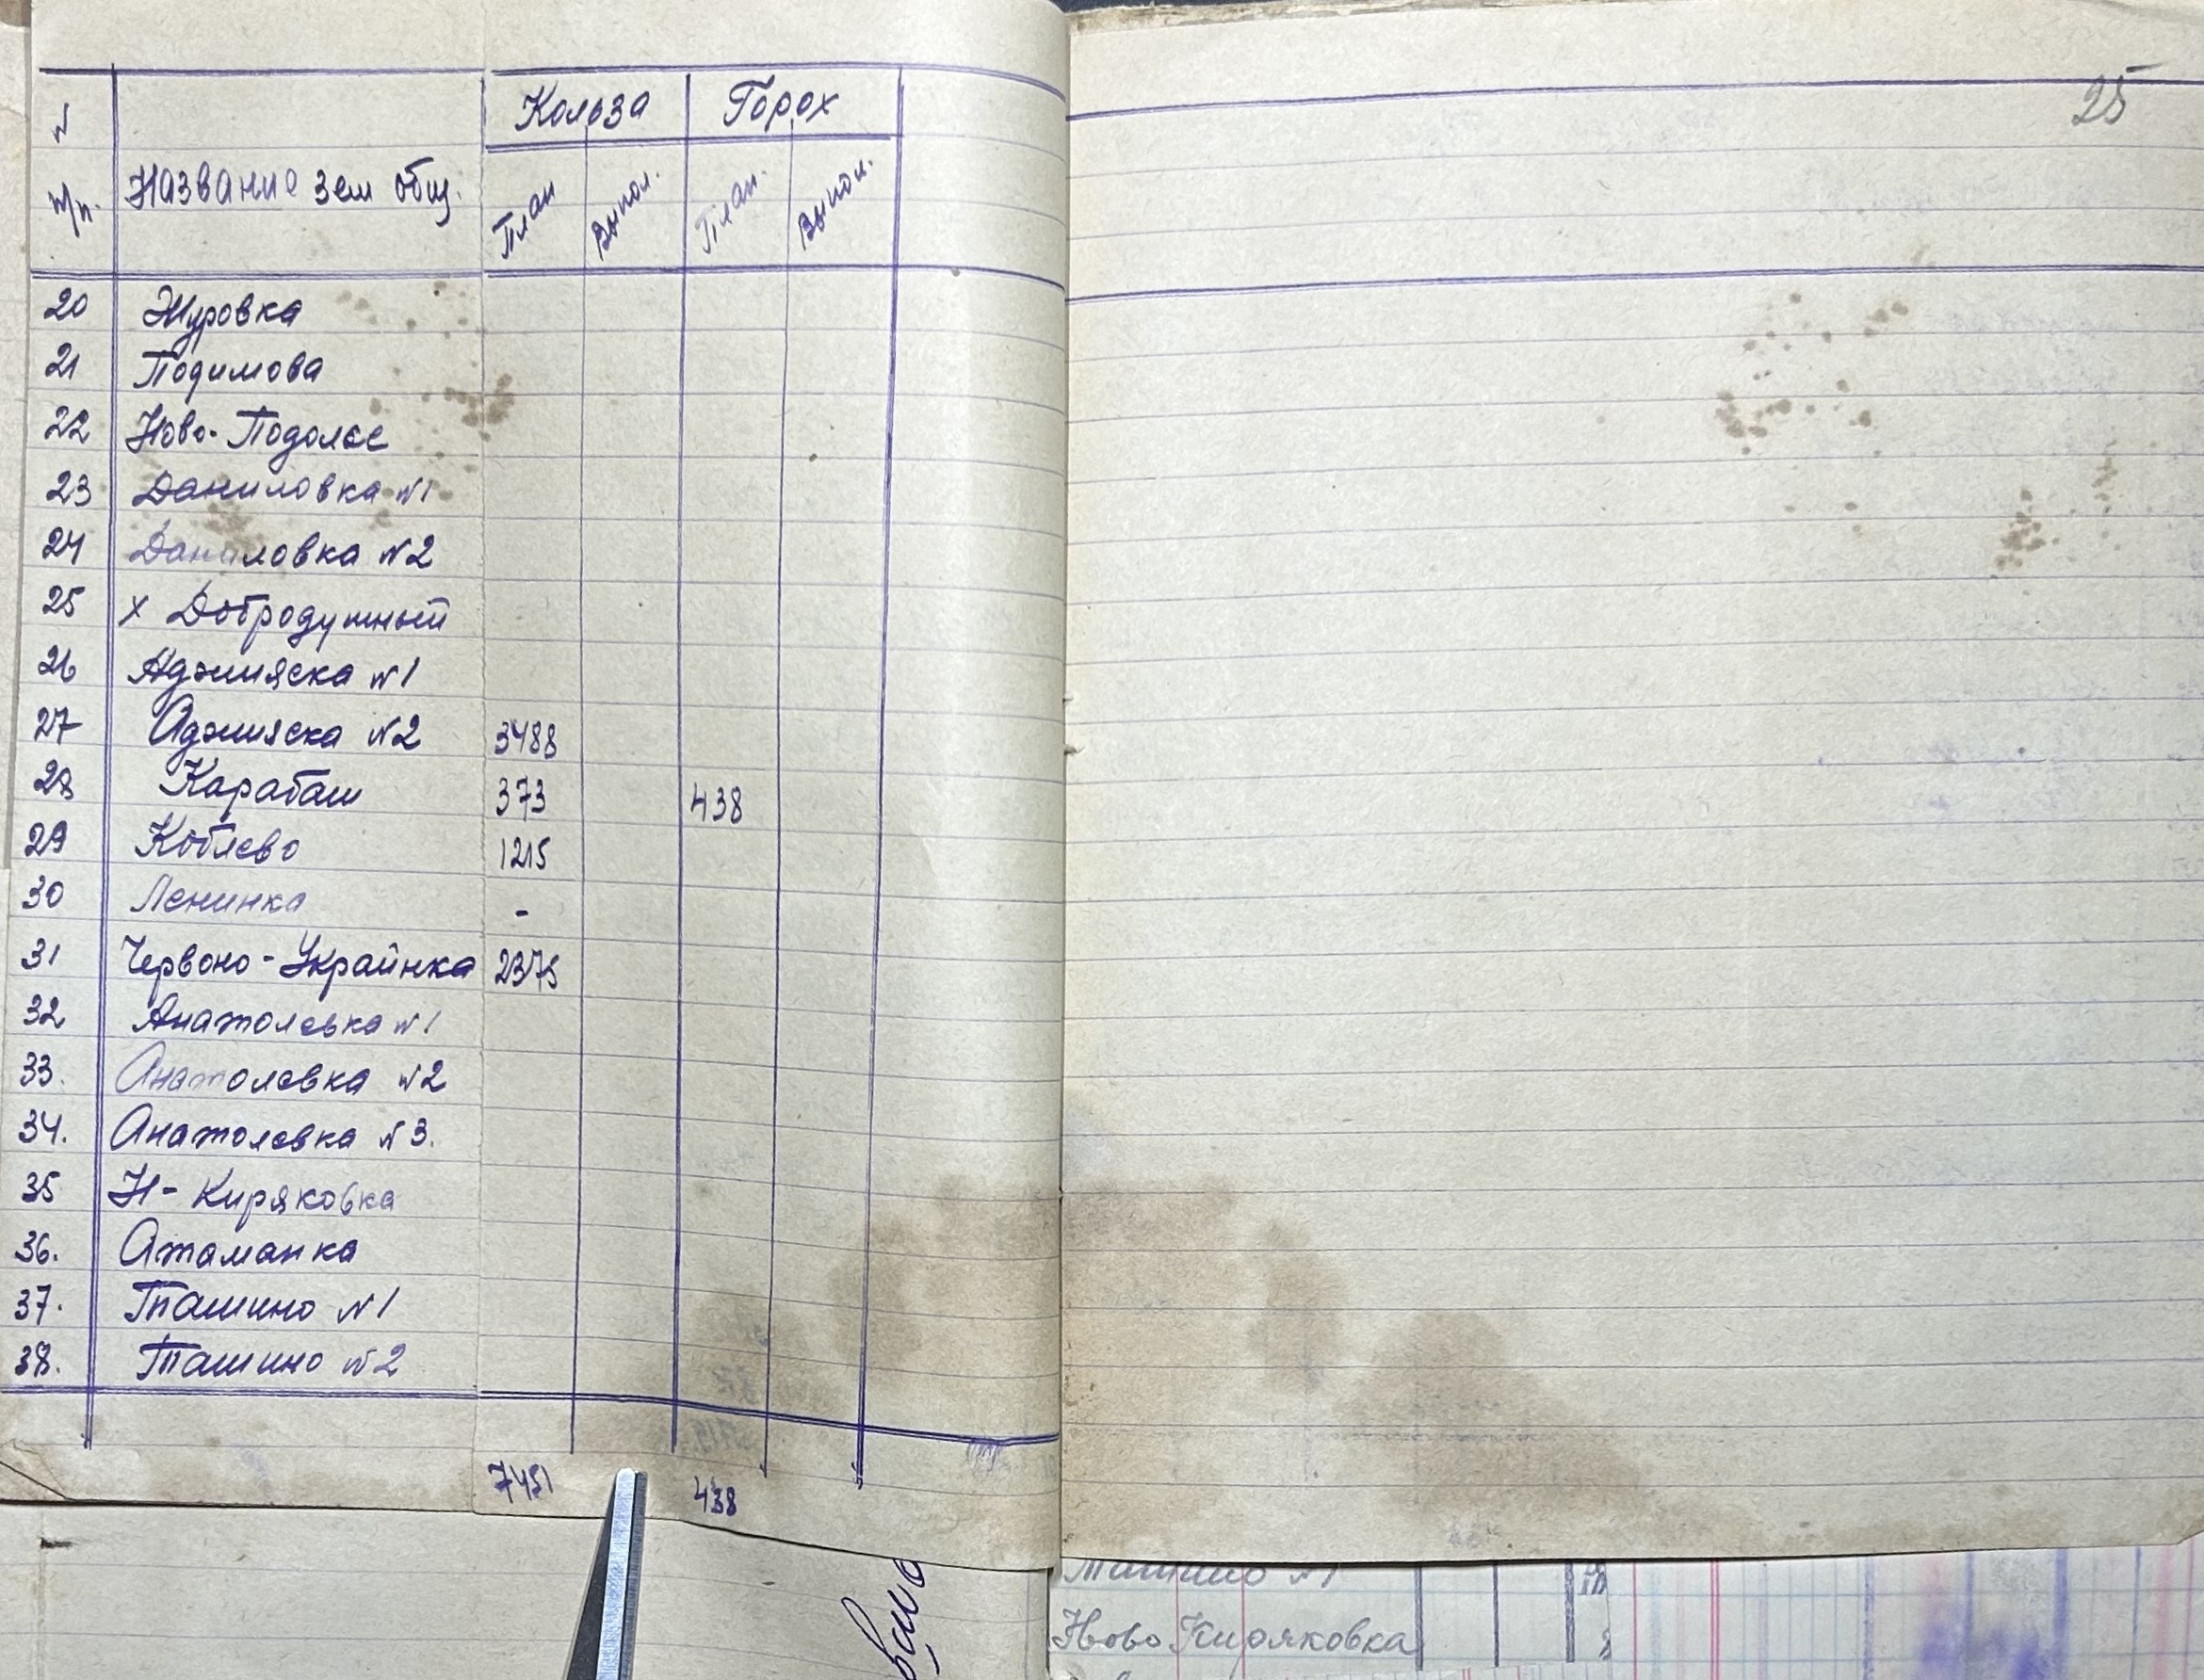 25
Кольза Горох
N п/п. Название зем общ. План Выпол. План. Выпол.
20 Журовка
21 Подимова
22 Ново-Подолье
23 Даниловка N1
24 Даниловка N2
25 х Добродушный
26 Аджияска N1
27 Аджияска N2 3488
28 Карабаш 373 438
29 Коблево 1215
30 Ленинка -
31 Червоно-Украинка 2375
32 Анатолевка N1
33. Анатолевка N2
34. Анатолевка N3.
35 Н-Киряковка
36. Атаманка
37. Ташино N1
38. Ташино N2
7451 438
Ташино N1
Ново Киряковка